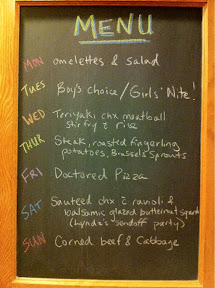 MENU
MON omelettes & salad
TUES Boy's choice/Girls' Nite!
WED Teriyaki chx meatball
stir fry & rice
THUR Steak, roasted fingerling
potatoes, Brussels sprouts
FRI Doctored Pizza
SAT Sauteed chx & ravioli &
balsamic glazed butternut squash
(Lynda's sendoff party)
SUN Corned Beef & Cabbage